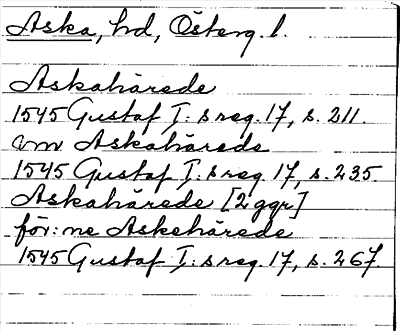 Aska, hd, Österg. l.
Askahärede
1545 Gustaf I: s reg. 17, s. 211.
vm Askahärede
1545 Gustaf I: s reg. 17, s. 235
Askahärede [2 ggr]
för: ne Askehärede
1545 Gustaf I: s reg. 17, s. 267.